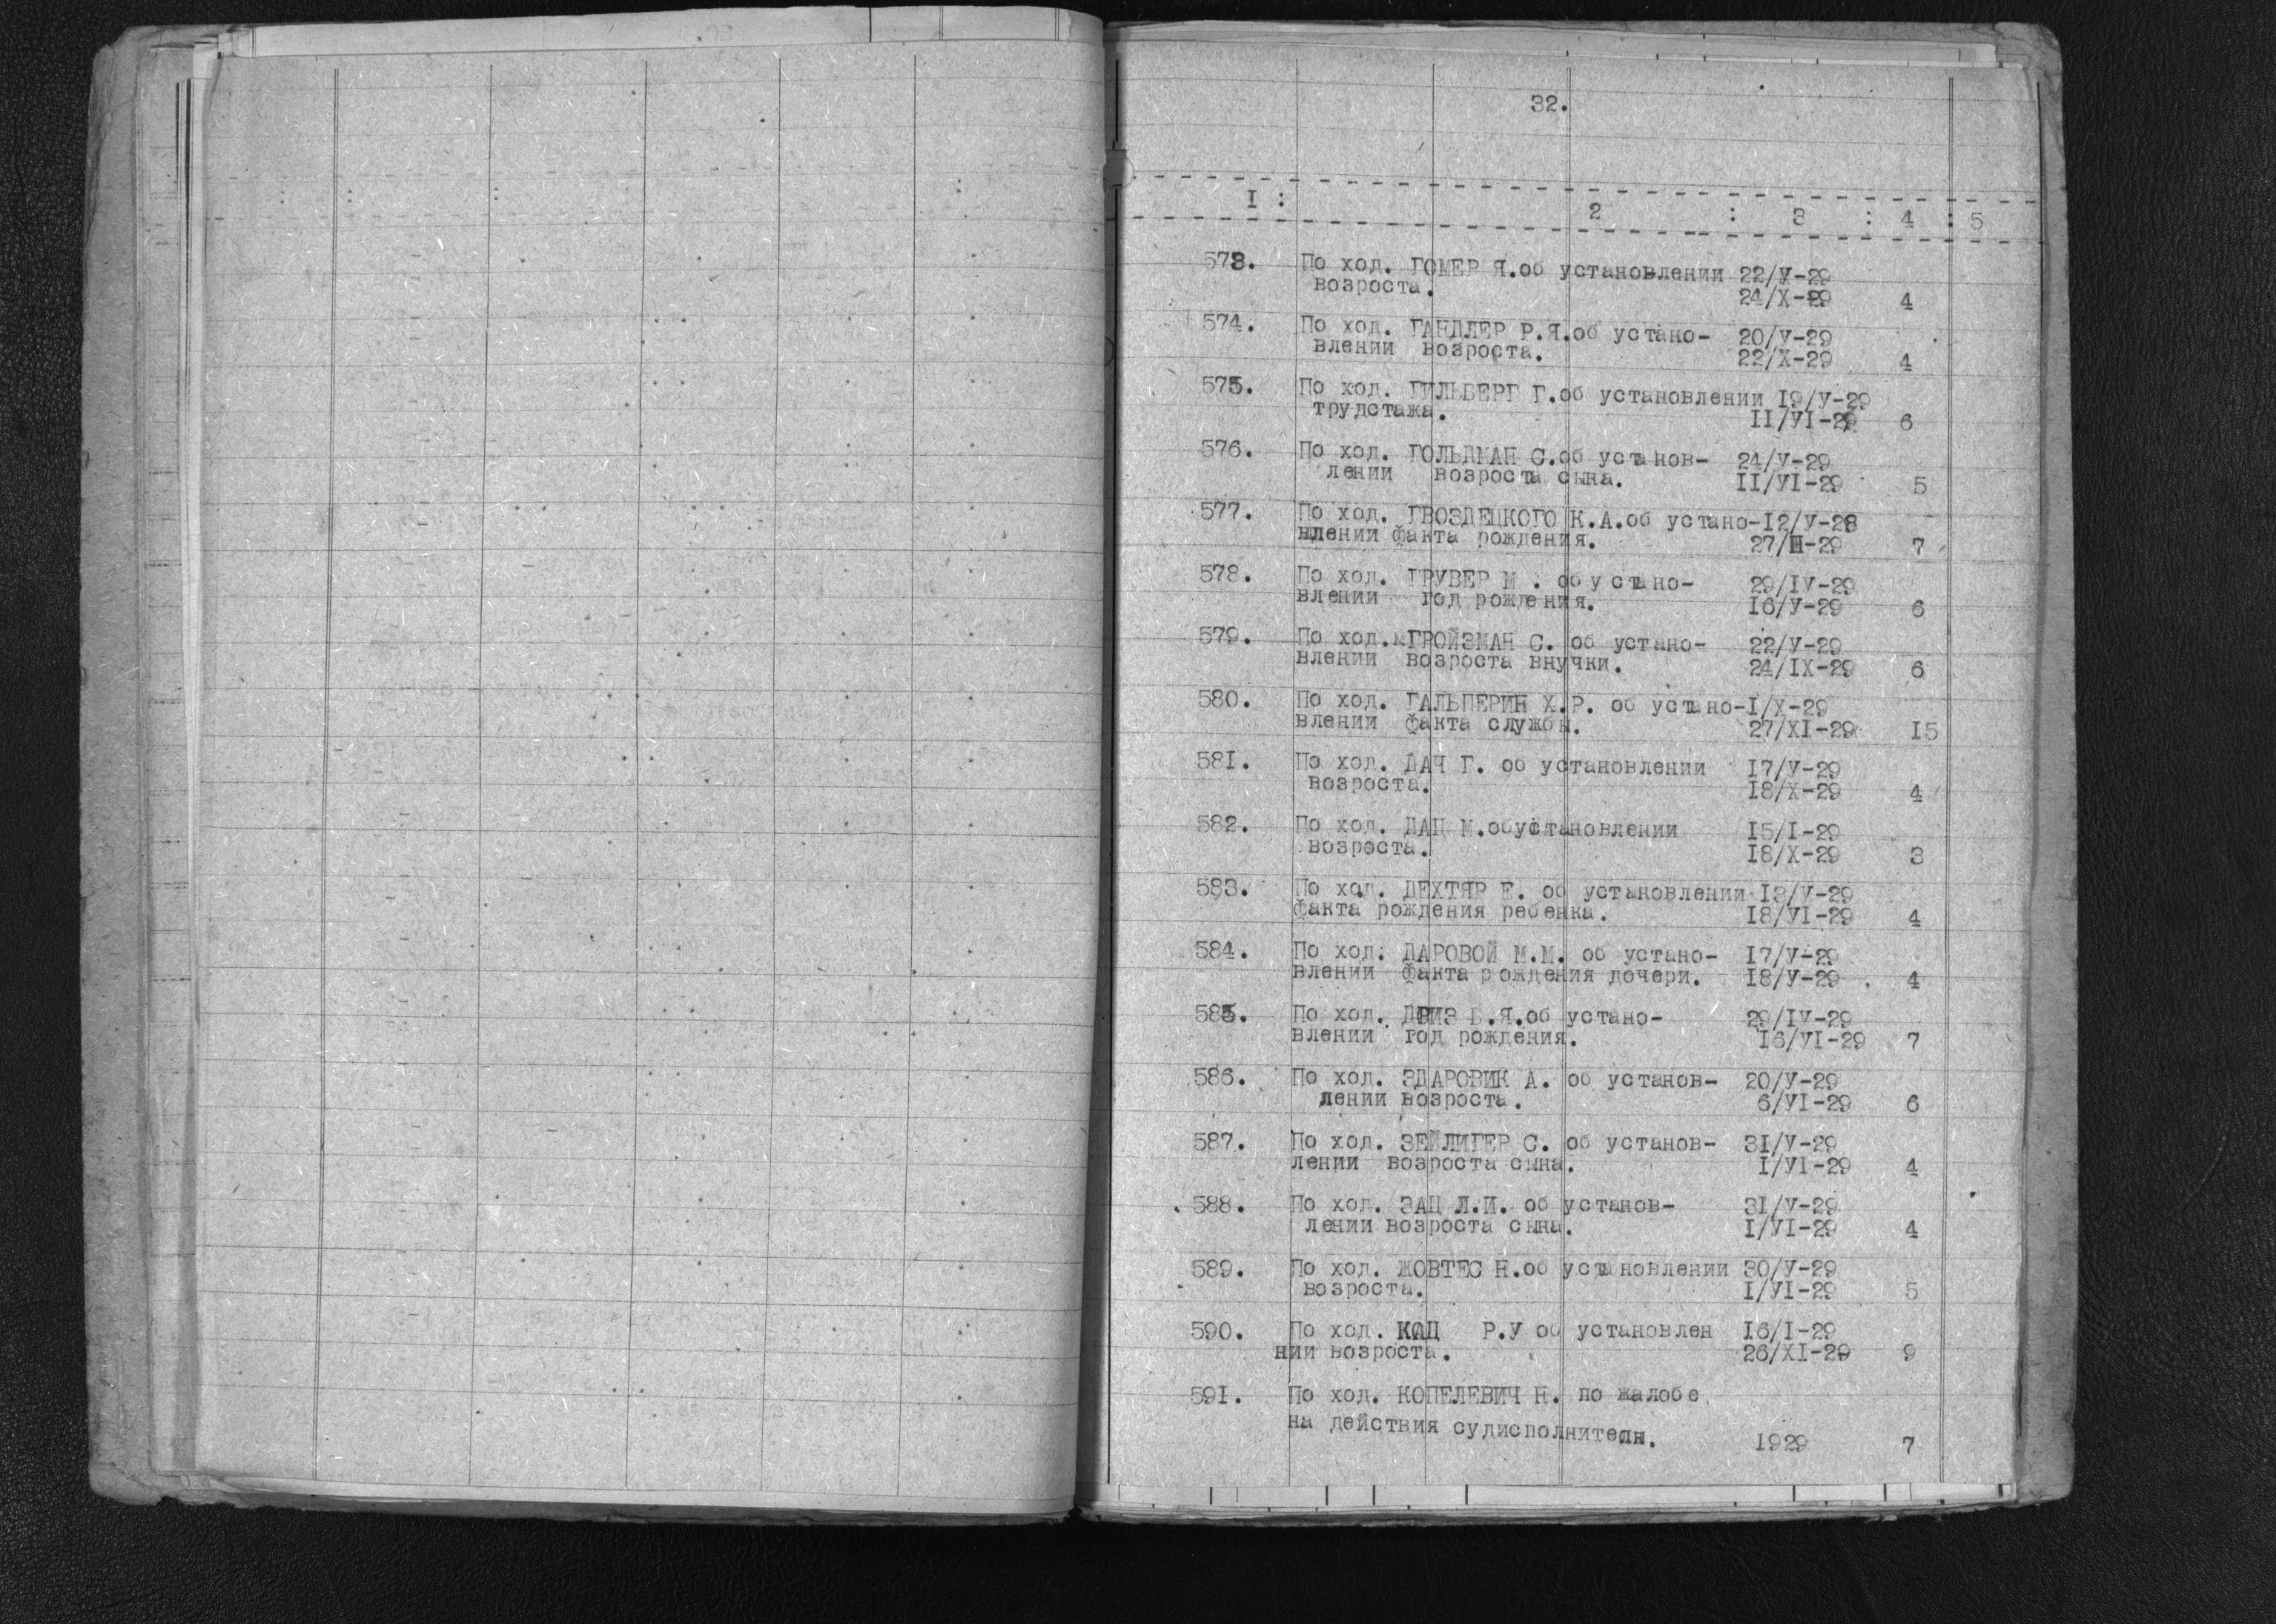 32.
I : 2 : 3 : 4 : 5
573. По ход. ГОМЕР Я.об установлении 22/У-29
возроста. 24/Х-29 4
574. По ход. ГАНДЛЕР Р.Я.об устано- 20/У-29
влении возроста. 22/Х-29 4
575. По ход. ГИЛЬБЕРГ Г.об установлении I9/У-29
трудстажа. II/УI-29 6
576. По ход. ГОЛЬДМАН С.об установ- 24/У-29
лении возроста сына. II/УI-29 5
577. По ход. ГВОЗДЕЦКОГО К.А.об устано-I2/У-28
влении факта рождения. 27/Ш-29 7
578. По ход. ГРУВЕР М . об устано- 29/IУ-29
влении год рождения. I6/У-29 6
579. По ход. ГРОЙЗМАН С. об устано- 22/У-29
влении возроста внучки. 24/IХ-29 6
580. По ход. ГАЛЬПЕРИН Х.Р. об устано-I/Х-29
влении факта службы. 27/ХI-29 I5
58I. По ход. ДАЧ Г. об установлении I7/У-29
возроста. I8/Х-29 4
582. По ход. ДАЦ М.обустановлении I5/I-29
возроста. I8/Х-29 3
583. По ход. ДЕХТЯР Е. об установлении I3/У-29
факта рождения ребенка. I8/УI-29 4
584. По ход. ДАРОВОЙ М.М. об устано- I7/У-29
влении факта рождения дочери. I8/У-29 4
585. По ход. ДРИЗ Я.об устано- 29/IУ-29
влении год рождения. I6/УI-29 7
586. По ход. ЗДАРОВИК А. об установ- 20/У-29
лении возроста. 6/УI-29 6
587. По ход. ЗЕЙЛИГЕР С. об установ- 3I/У-29
лении возроста сына. I/УI-29 4
588. По ход. ЗАЦ Л.И. об установ- 3I/У-29
лении возроста сына. I/УI-29 4
589. По ход. ЖОВТЕС Н.об установлении 30/У-29
возроста. I/УI-29 5
590. По ход. КАЦ Р.У об установлен I6/I-29
нии возроста. 26/ХI-29 9
59I. По ход. КОПЕЛЕВИЧ Н. по жалобе
на действия судисполнителя. I929 7